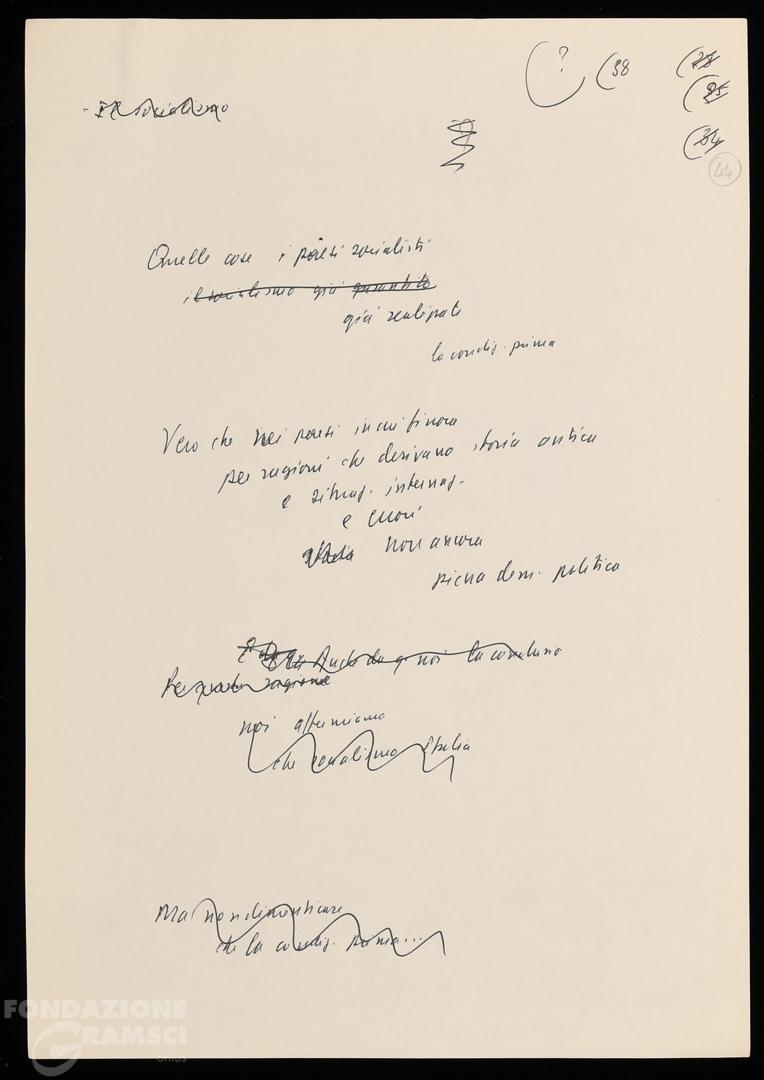 (?
(38
(28
(25
(34
44
- Il socialismo
Quelle cose i paesi socialisti
il socialismo già garantito
già realizzate
la condiz. prima
Vero che nei paesi in cui finora
per ragioni che derivano storia antica
e situaz. internaz.
e errori
non ancora
piena dem. politica
Anche da noi la
Per questa ragione
noi affermiamo
che socialismo Italia
Ma non dimenticare
che la condiz. prima...
FONDAZIONE
GRAMSCI
onlus